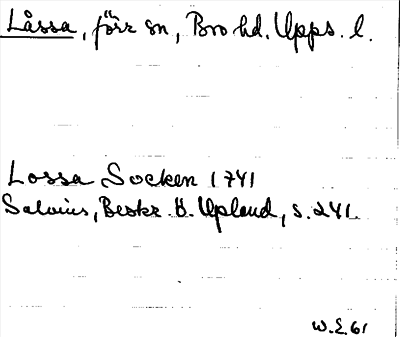 Låssa, förr sn, Bro hd. Upps. l.
Lossa Socken 1741
Salvius, Beskr. ö. Upland, s. 241.
W.E. 61